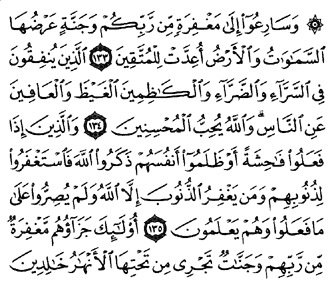 ۞ وَسَارِعُوٓا۟ إِلَىٰ مَغْفِرَةٍ مِّن رَّبِّكُمْ وَجَنَّةٍ عَرْضُهَا
ٱلسَّمَـٰوَٰتُ وَٱلْأَرْضُ أُعِدَّتْ لِلْمُتَّقِينَ ١٣٣ ٱلَّذِينَ يُنفِقُونَ
فِى ٱلسَّرَّآءِ وَٱلضَّرَّآءِ وَٱلْكَـٰظِمِينَ ٱلْغَيْظَ وَٱلْعَافِينَ
عَنِ ٱلنَّاسِ ۗ وَٱللَّهُ يُحِبُّ ٱلْمُحْسِنِينَ ١٣٤ وَٱلَّذِينَ إِذَا
فَعَلُوا۟ فَـٰحِشَةً أَوْ ظَلَمُوٓا۟ أَنفُسَهُمْ ذَكَرُوا۟ ٱللَّهَ فَٱسْتَغْفَرُوا۟
لِذُنُوبِهِمْ وَمَن يَغْفِرُ ٱلذُّنُوبَ إِلَّا ٱللَّهُ وَلَمْ يُصِرُّوا۟ عَلَىٰ
مَا فَعَلُوا۟ وَهُمْ يَعْلَمُونَ ١٣٥ أُو۟لَـٰٓئِكَ جَزَآؤُهُم مَّغْفِرَةٌ
مِّن رَّبِّهِمْ وَجَنَّـٰتٌ تَجْرِى مِن تَحْتِهَا ٱلْأَنْهَـٰرُ خَـٰلِدِينَ